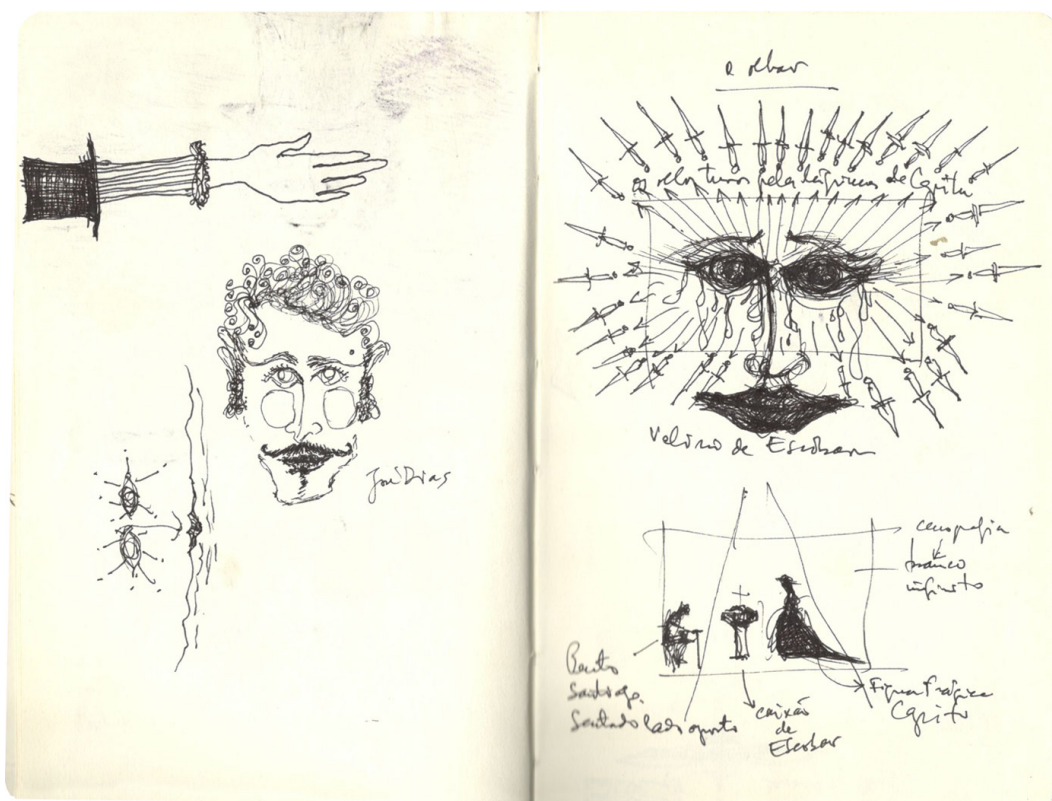 José Dias
o olhar
o olho turvo pela lágrima de Capitu
Velório de Escobar
cenografia
branco
infinito
Bento
Santiago
Sentado lado oposto
caixão
de
Escobar
Figura trágica
Capitu